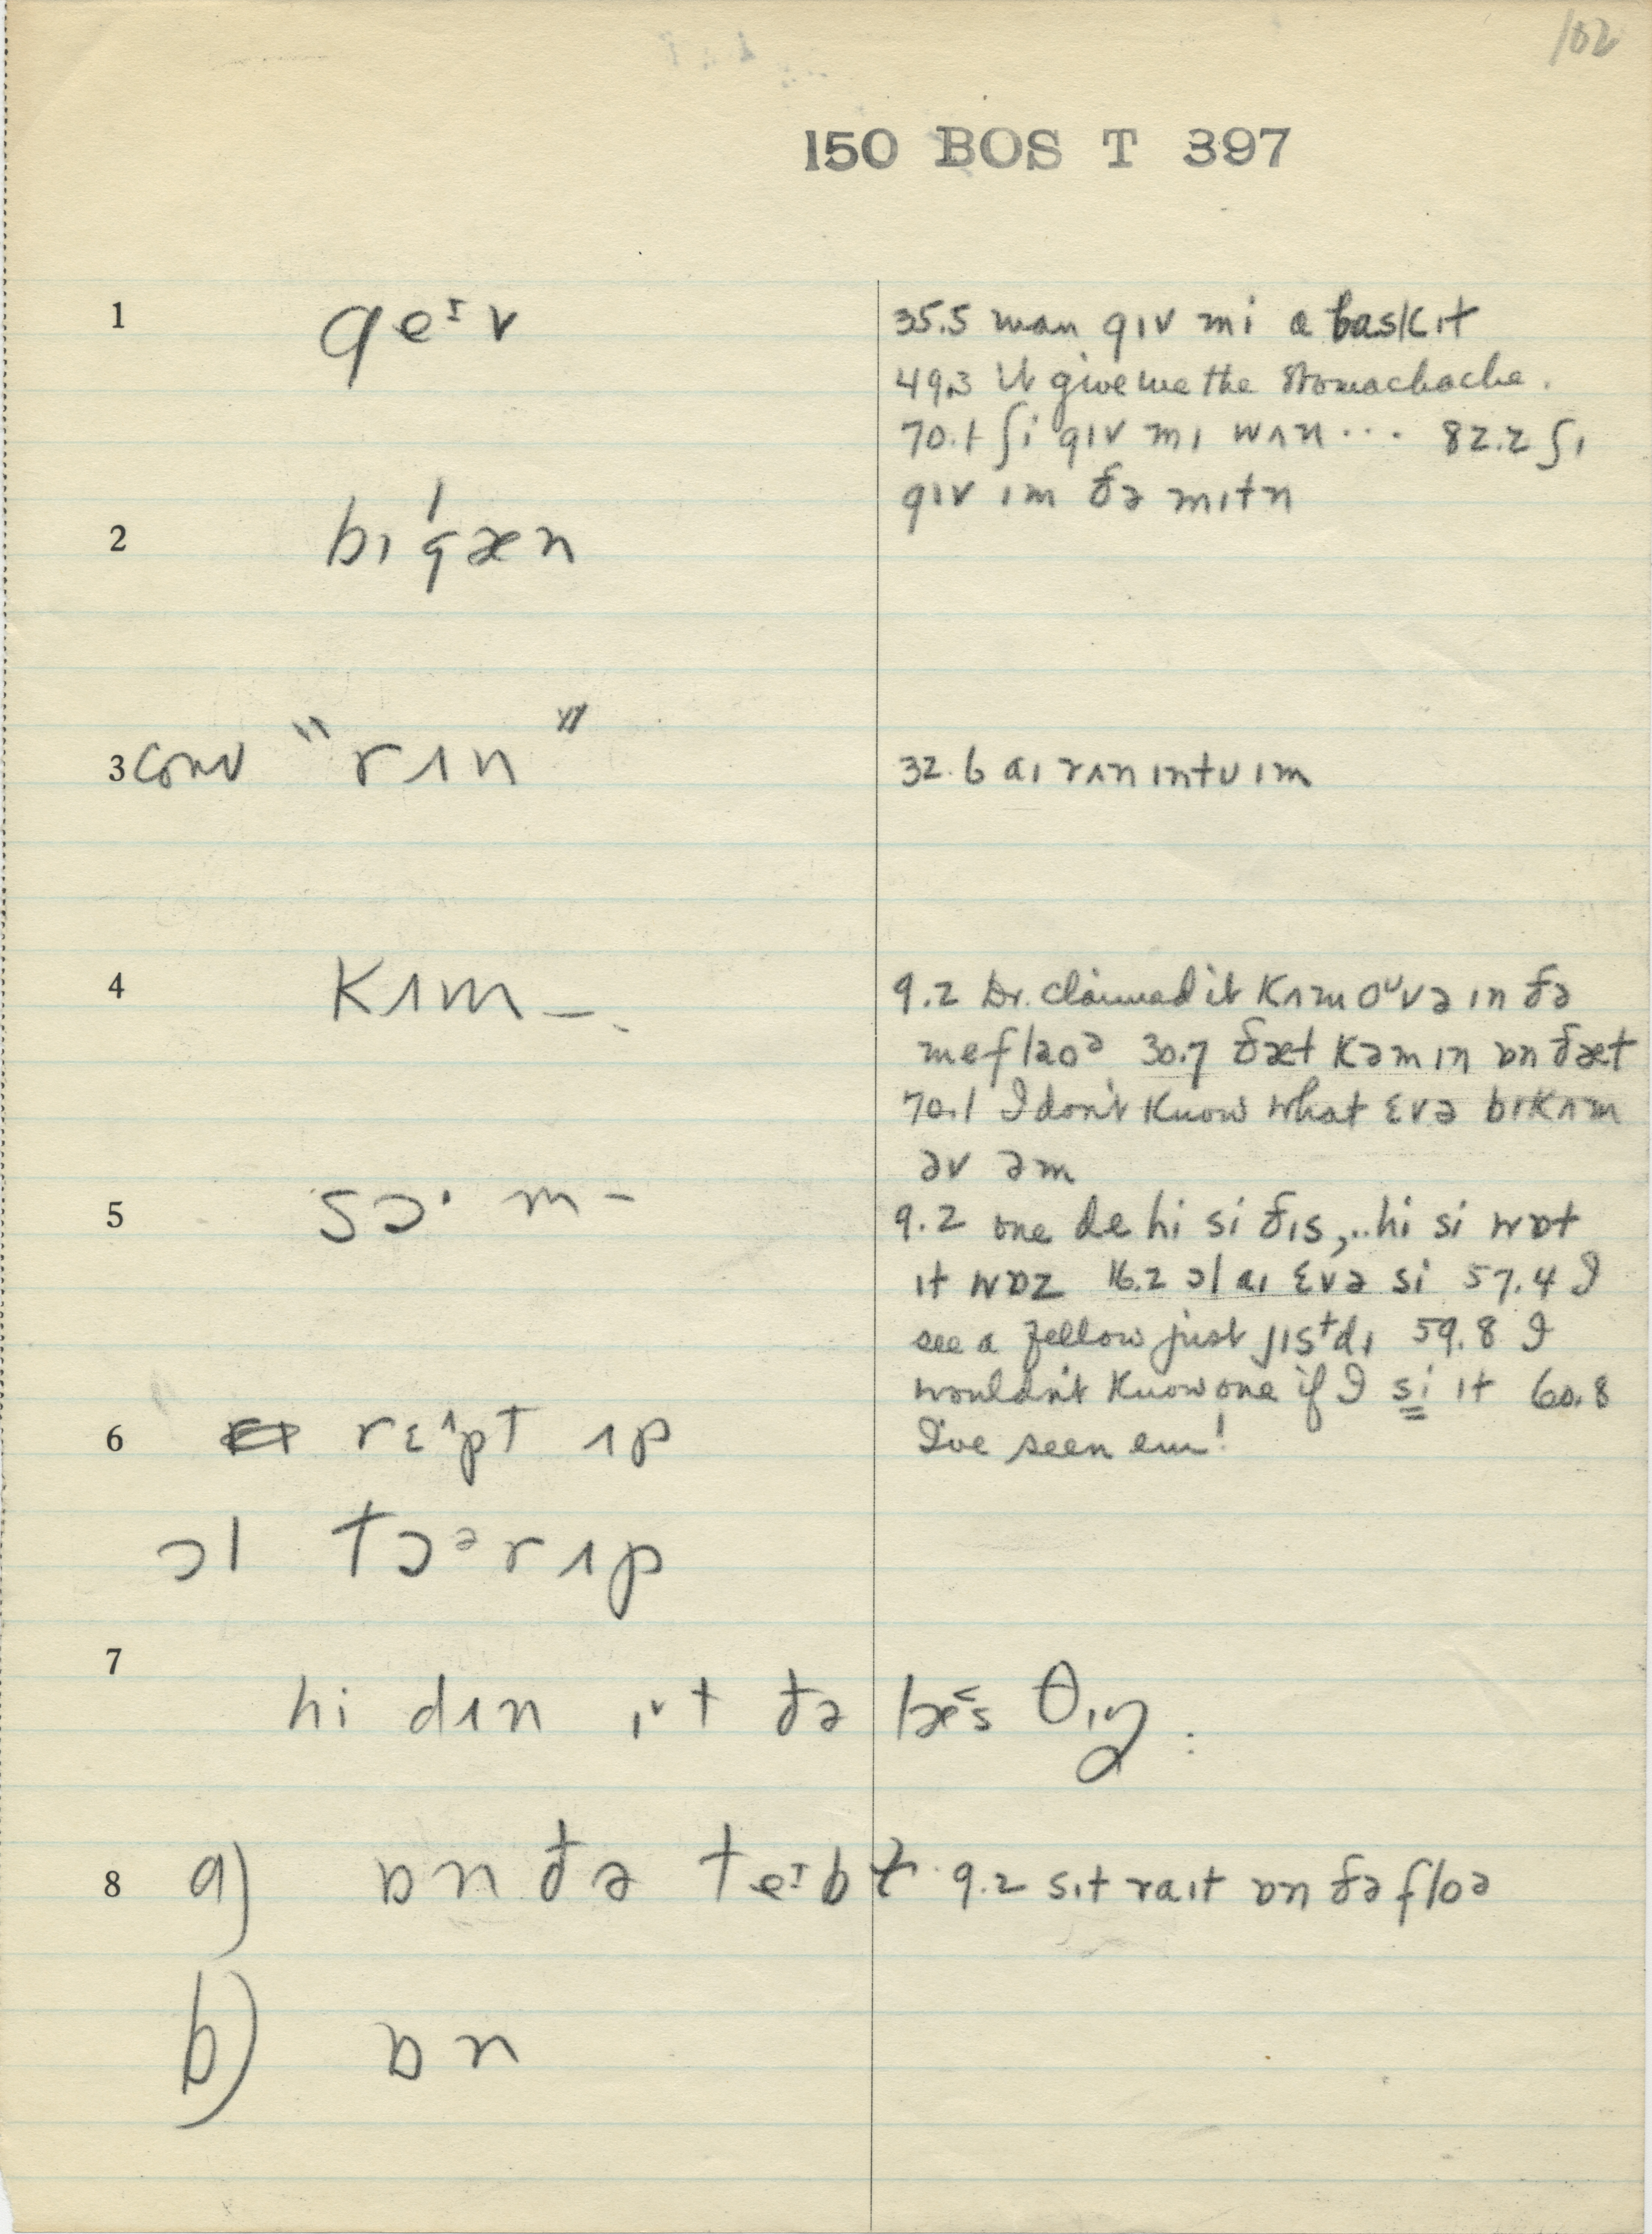 102
150 BOS T 397
1 geɪv
35.5 man gɪv mi a baskɪt
49.3 It give me the stomachache.
70.1 ʃi gɪv mɪ wʌn ... 82.2 ʃɪ
gɪv ɪm ðə mɪtn
2 bɪ'gæn
3 conv "rʌn"
32.6 aɪ rʌn ɪntʊ ɪm
4 kʌm –.
9.2 Dr. claimed it kʌm oᵁvə ɪn ðə
30.7 ðæt kəm ɪn ɒn ðæt
70.1 I don't know what ɛvə bɪkʌm
əv əm
5 sɔ· m –
9.2 one de hi si ðɪs,..hi si wɒt
ɪt wɒz 16.2 ɔl aɪ ɛvə si 57.4 I
see a fellow just jɪsᵗdɪ 59.8 I
wouldn't know one if I si ɪt 60.8
I've seen em!
6 rɛʌpt ʌp
ɔl tɔᵊr ʌp
7
hi dʌn ɪ˅t ðə bɛs θɪŋ.
8 a) ɒn ðə teɪbɫ
9.2 sɪt raɪt ɒn ðə floə
b) ɒn